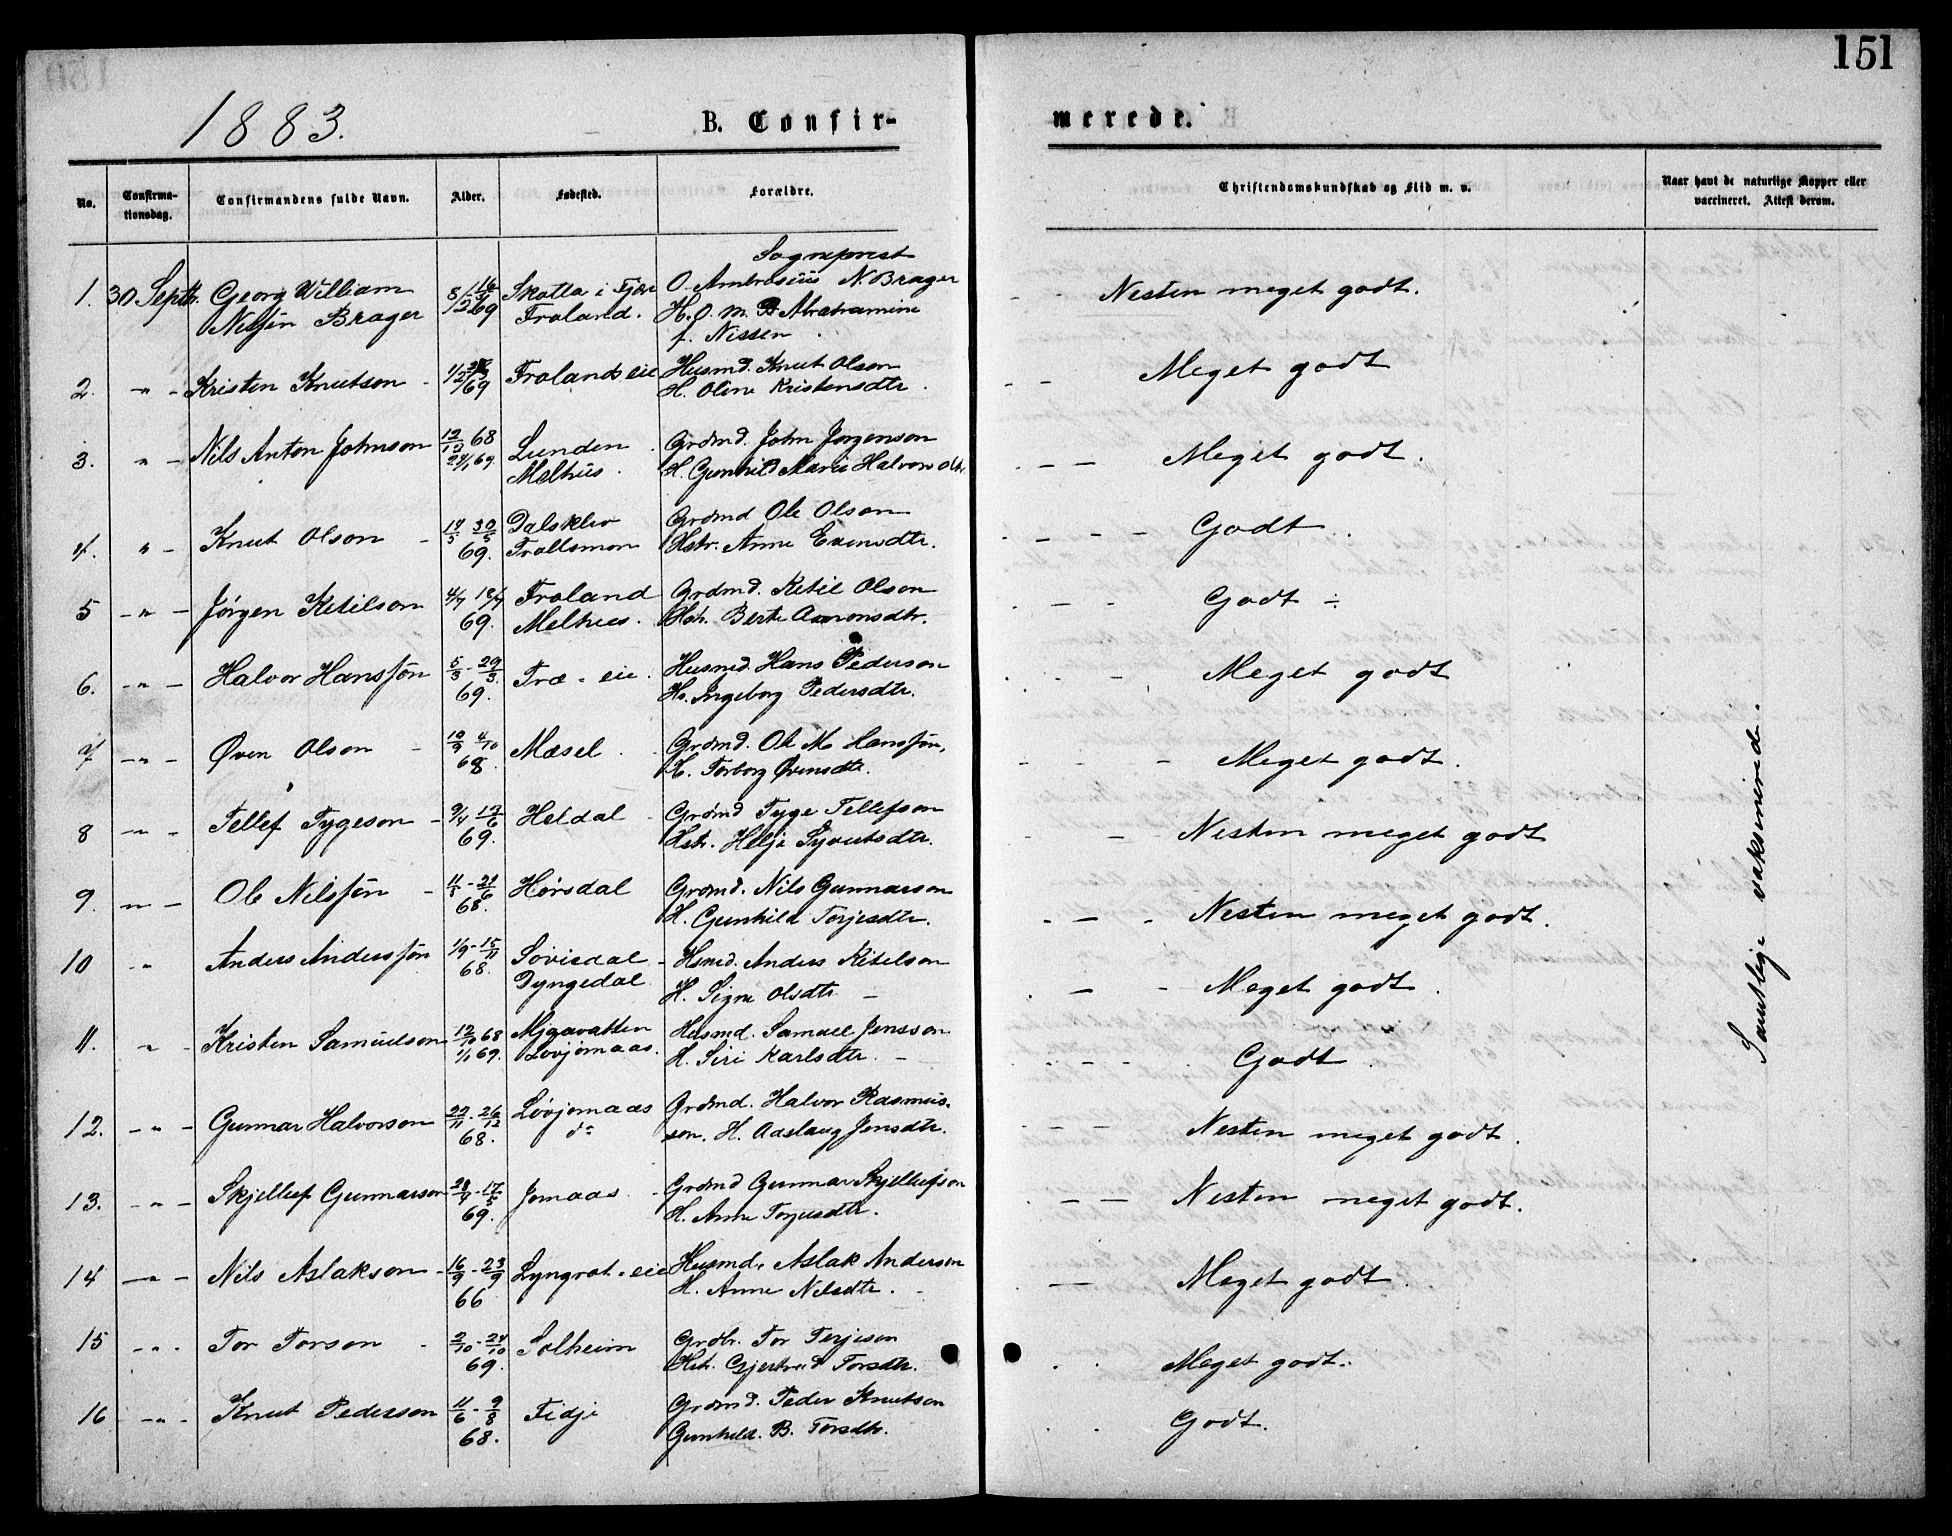 151
1883.
B. Confir-
merede.
No.
Confirma-
tionsdag.
Confirmandens fulde Navn.
Alder.
Fødested.
Forældre.
Christendomskundskab og Flid m. v.
Naar havt de naturlige Kopper eller
vaccineret. Attest derom.
Sogneprest
1. 30 Septb. Georg William Skatla i Fjære O. Ambrosius N. Brager Nesten meget godt.
Nilsøn Brager Froland. H. O. M. Abrahamine
f. Nissen
2. " Kristen Knutson 69 Frolands eie Husmd. Knut Olson Meget godt
H. Oline Kristensdtr.
3. " Nils Anton Johnson 12/12 68 Lunden Grdmd. John Jørgenson Meget godt.
24/1 69. Melhus. H. Gunhild Marie Halvorsdtr.
4. " Knut Olson 14/5 30/5 Dalsklev Grdmd Ole Olson Godt.
69. Trollsmon Hstr. Anne Evensdtr.
5 " Jørgen Ketilson 4/7 18/7 Froland Grdmd. Ketil Olson Godt ÷
69. Melhus. Hstr. Berte Aaronsdtr.
6. " Halvor Hansøn 5/3 - 29/3 Træ - eie. Husmd. Hans Pederson Meget godt
69. H. Ingeborg Pedersdtr.
7 " Øven Olson 10/9 4/10 Mæsel. Grdmd. Ole M. Hansøn, Meget godt.
68 H. Torborg Øvensdtr.
8 " Tellef Tygeson 9/4 12/6 Heldal Grdmd Tyge Tellefson Nesten meget godt
69. Hstr. Helje Syvertsdtr.
9. " Ole Nilsøn 21/6 Hørsdal Grdmd. Nils Gunnarson Nesten meget godt.
68. H. Gunhild Terjesdtr.
10 " Anders Andersøn 1/9 - 15/11 Løvisdal Hsmd. Anders Ketelson Meget godt.
68. Dyngedal. H. Signe Olsdtr
11. " Kristen Samuelson 12/10 68 Mjaavatten Husmd. Samuel Jensson Godt.
1/1 69. Løvjomaas. H. Siri Karlsdtr.
12. " Gunnar Halvorson 22/11 - 26/12 Løvjomaas Grdmd. Halvor Rasmus- Nesten meget godt.
68. do son. H. Aaslaug Jensdtr.
13. " Skjellef Gunnarson 28/4 - 17/5 Jomaas. Grdmd Gunnar Skjellefson Nesten meget godt.
69. H. Anne Terjesdtr.
14 " Nils Aslakson 16/9 - 23/9 Lyngrot - eie Husmd. Aslak Anderson Meget godt.
66 H. Anne Nilsdtr.
15 " Tor Torson 2/10 - 24/10 Solheim Grdbr. Tor Terjeson Meget godt.
69. Hstr. Gjertrud Torsdtr.
16 " Knut Pederson 11/6 - 9/8 Fidje Grdmd. Peder Knutson Godt.
68. Gunhild. B. Torsdtr.
Samtlige vaksinerede.